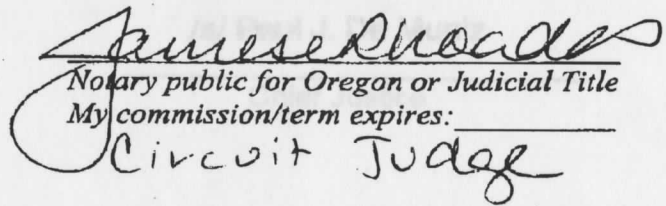 Jamese Rhoades
Notary public for Oregon or Judicial Title
My commission/term expires:
Circuit Judge